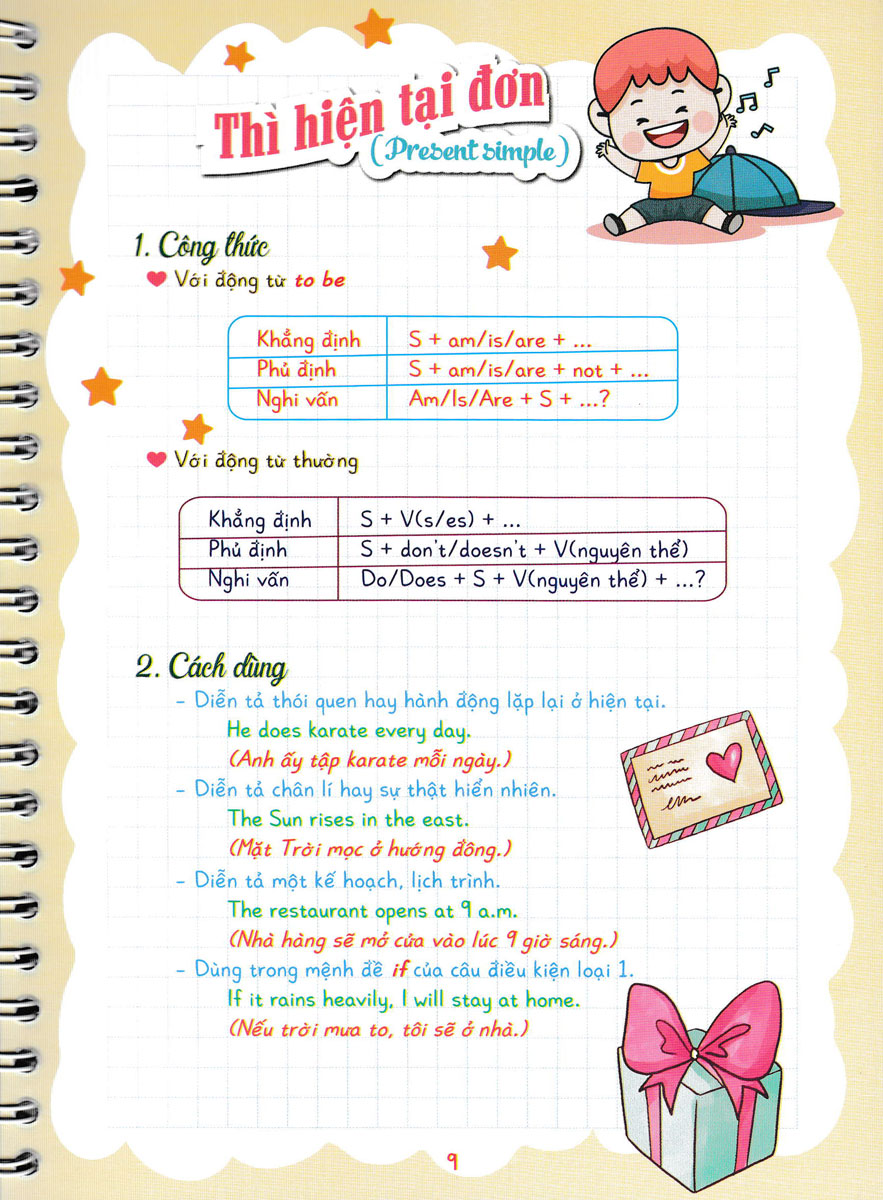 Thì hiện tại đơn
(Present simple)
1. Công thức
Với động từ to be
Khẳng định S + am/is/are + ...
Phủ định S + am/is/are + not + ...
Nghi vấn Am/Is/Are + S + ...?
Với động từ thường
Khẳng định S + V(s/es) + ...
Phủ định S + don't/doesn't + V(nguyên thể)
Nghi vấn Do/Does + S + V(nguyên thể) + ...?
2. Cách dùng
– Diễn tả thói quen hay hành động lặp lại ở hiện tại.
He does karate every day.
(Anh ấy tập karate mỗi ngày.)
– Diễn tả chân lí hay sự thật hiển nhiên.
The Sun rises in the east.
(Mặt Trời mọc ở hướng đông.)
– Diễn tả một kế hoạch, lịch trình.
The restaurant opens at 9 a.m.
(Nhà hàng sẽ mở cửa vào lúc 9 giờ sáng.)
– Dùng trong mệnh đề if của câu điều kiện loại 1.
If it rains heavily, I will stay at home.
(Nếu trời mưa to, tôi sẽ ở nhà.)
9